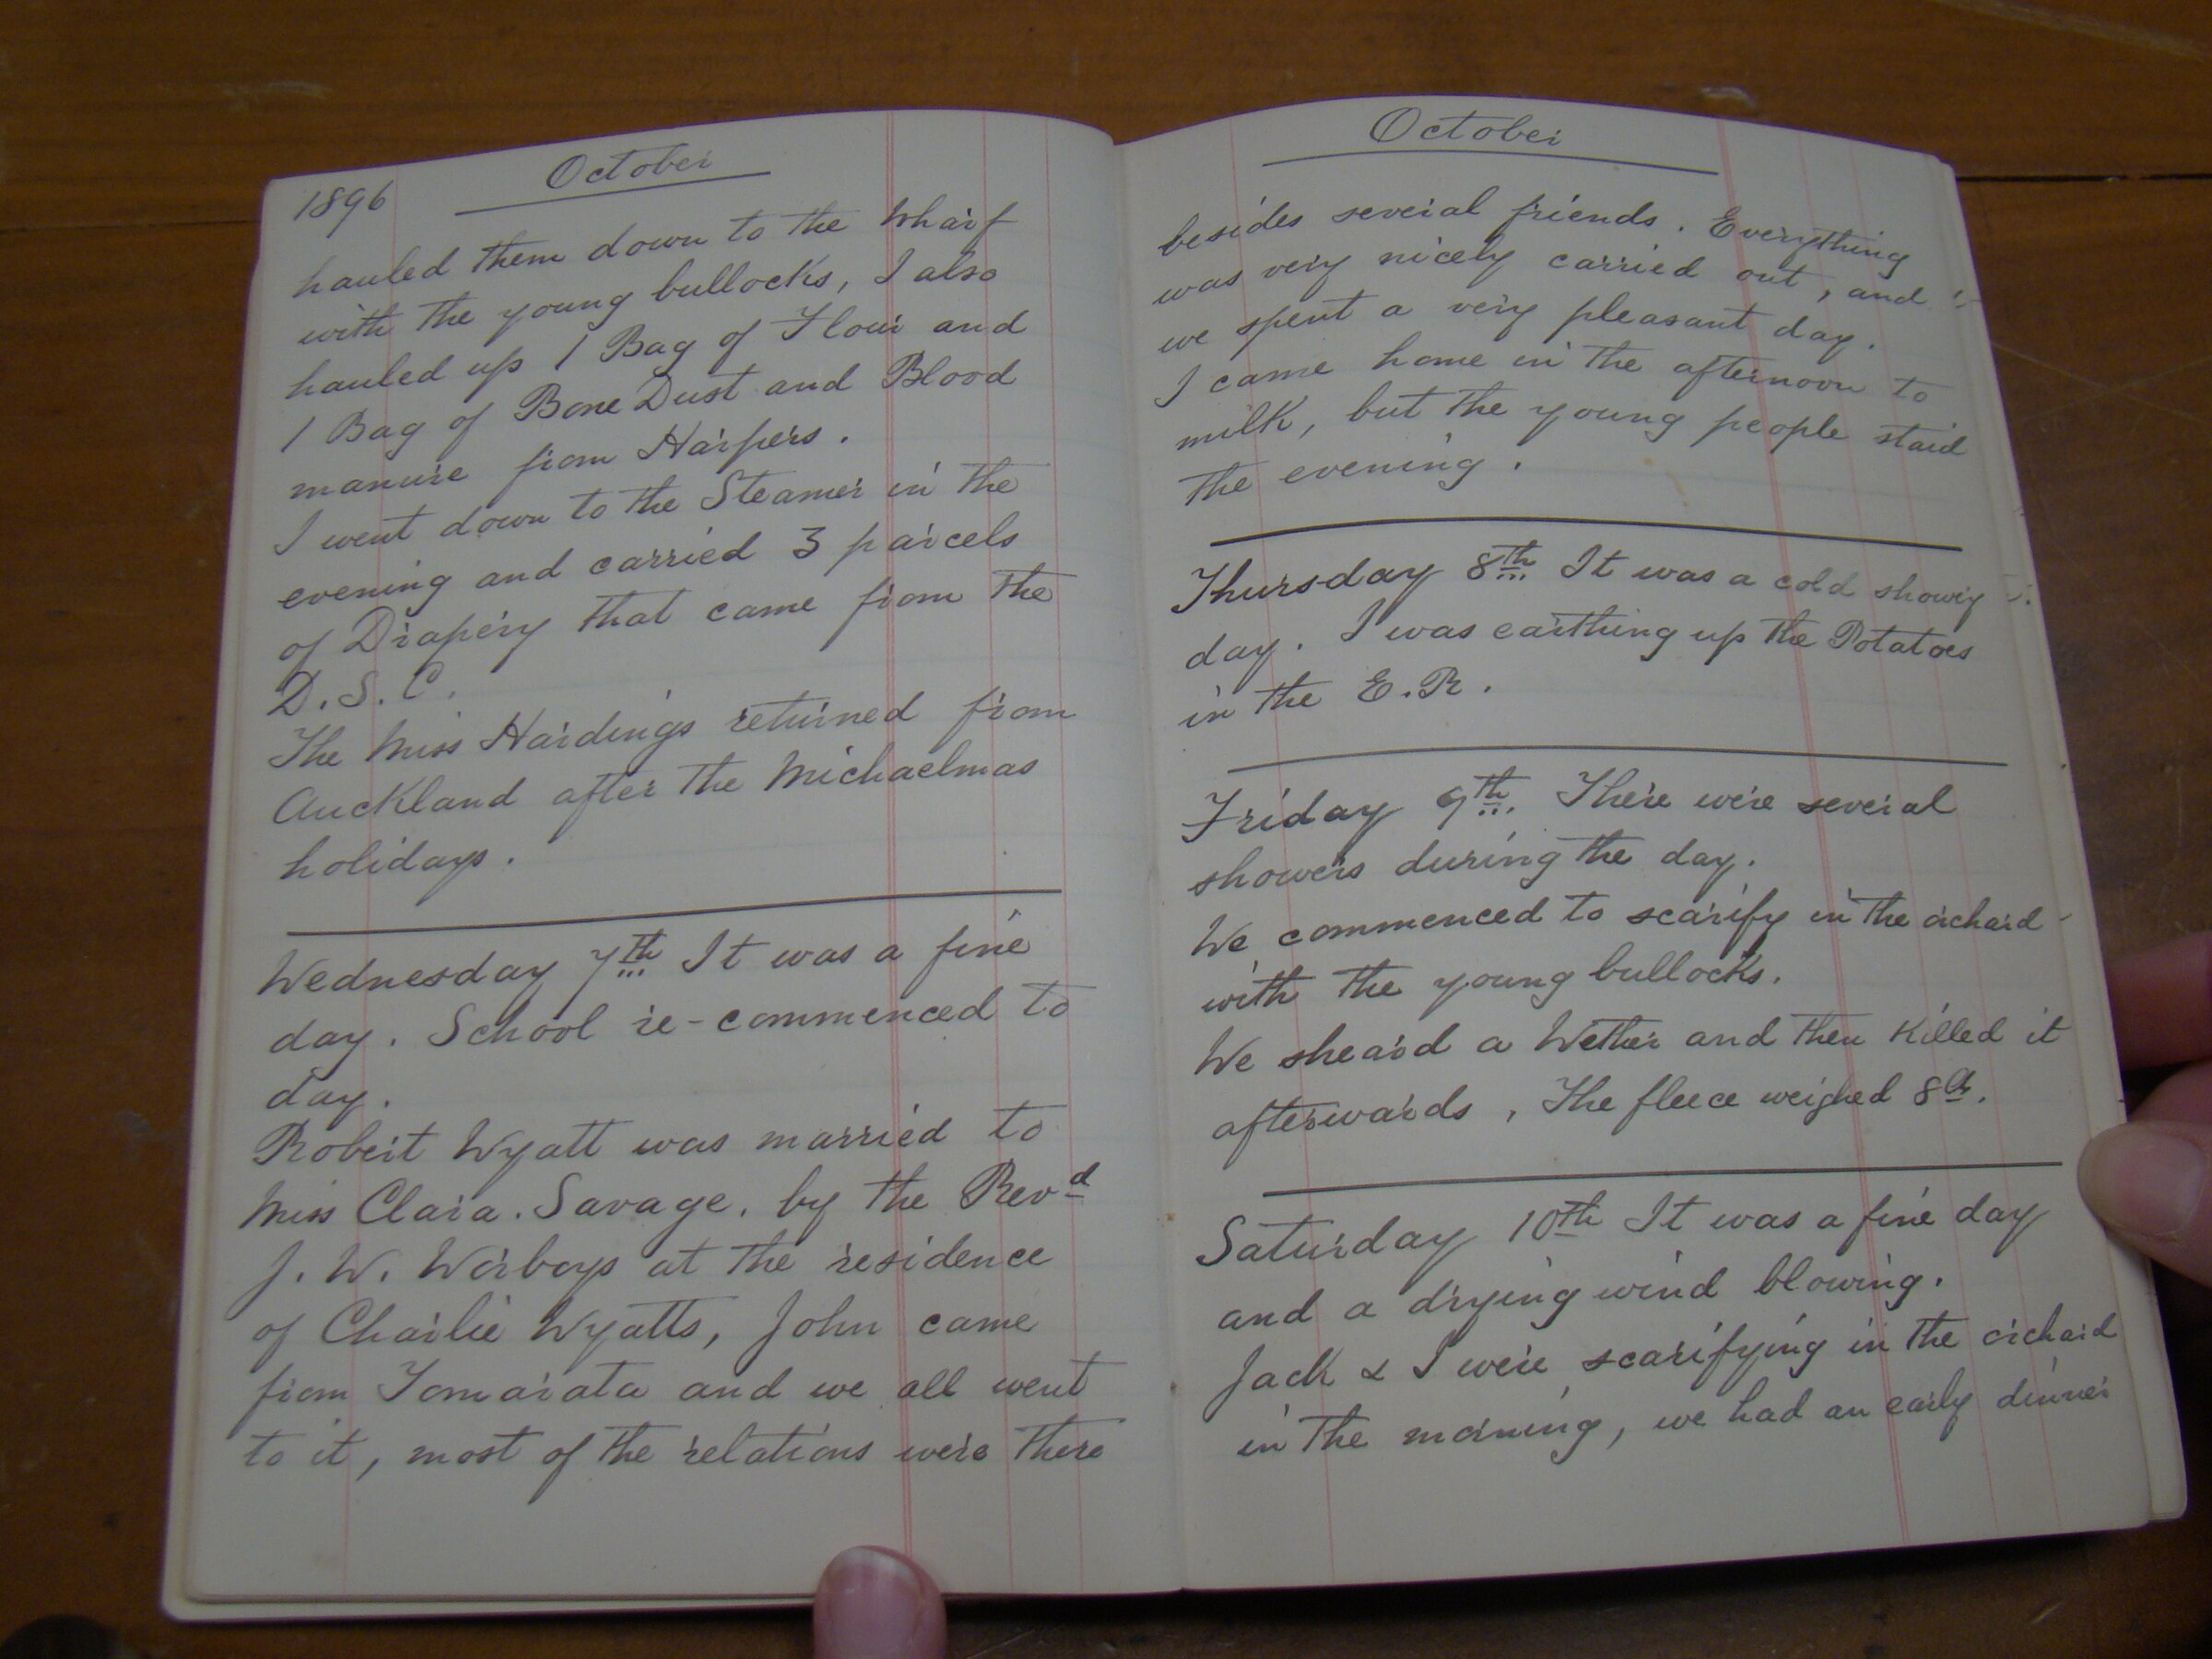 1896
October
hauled them down to the Wharf
with the young bullocks, I also
hauled up 1 Bag of Flour and
1 Bag of Bone Dust and Blood
manure from Harpers.
I went down to the Steamer in the
evening and carried 3 parcels
of Drapery that came from the
D.S.C.
The Miss Hardings returned from
Auckland after the Michaelmas
holidays.
Wednesday 7th It was a fine
day. School re-commenced to
day.
Robert Wyatt was married to
Miss Clara. Savage. by the Revd
J. W. Worboys at the residence
of Charlie Wyatts, John came
from Tomarata and we all went
to it, most of the relations were there
October
besides several friends. Everything
was very nicely carried out, and
we spent a very pleasant day.
I came home in the afternoon to
milk, but the young people staid
the evening.
Thursday 8th It was a cold showry
day. I was earthing up the Potatoes
in the E.R.
Friday 9th. There were several
showers during the day.
We commenced to scarify in the orchard
with the young bullocks.
We sheard a Wether and then killed it
afterwards, The fleece weighed 8lb.
Saturday 10th It was a fine day
and a drying wind blowing.
Jack & I were scarifying in the orchard
in the morning, we had an early dinner